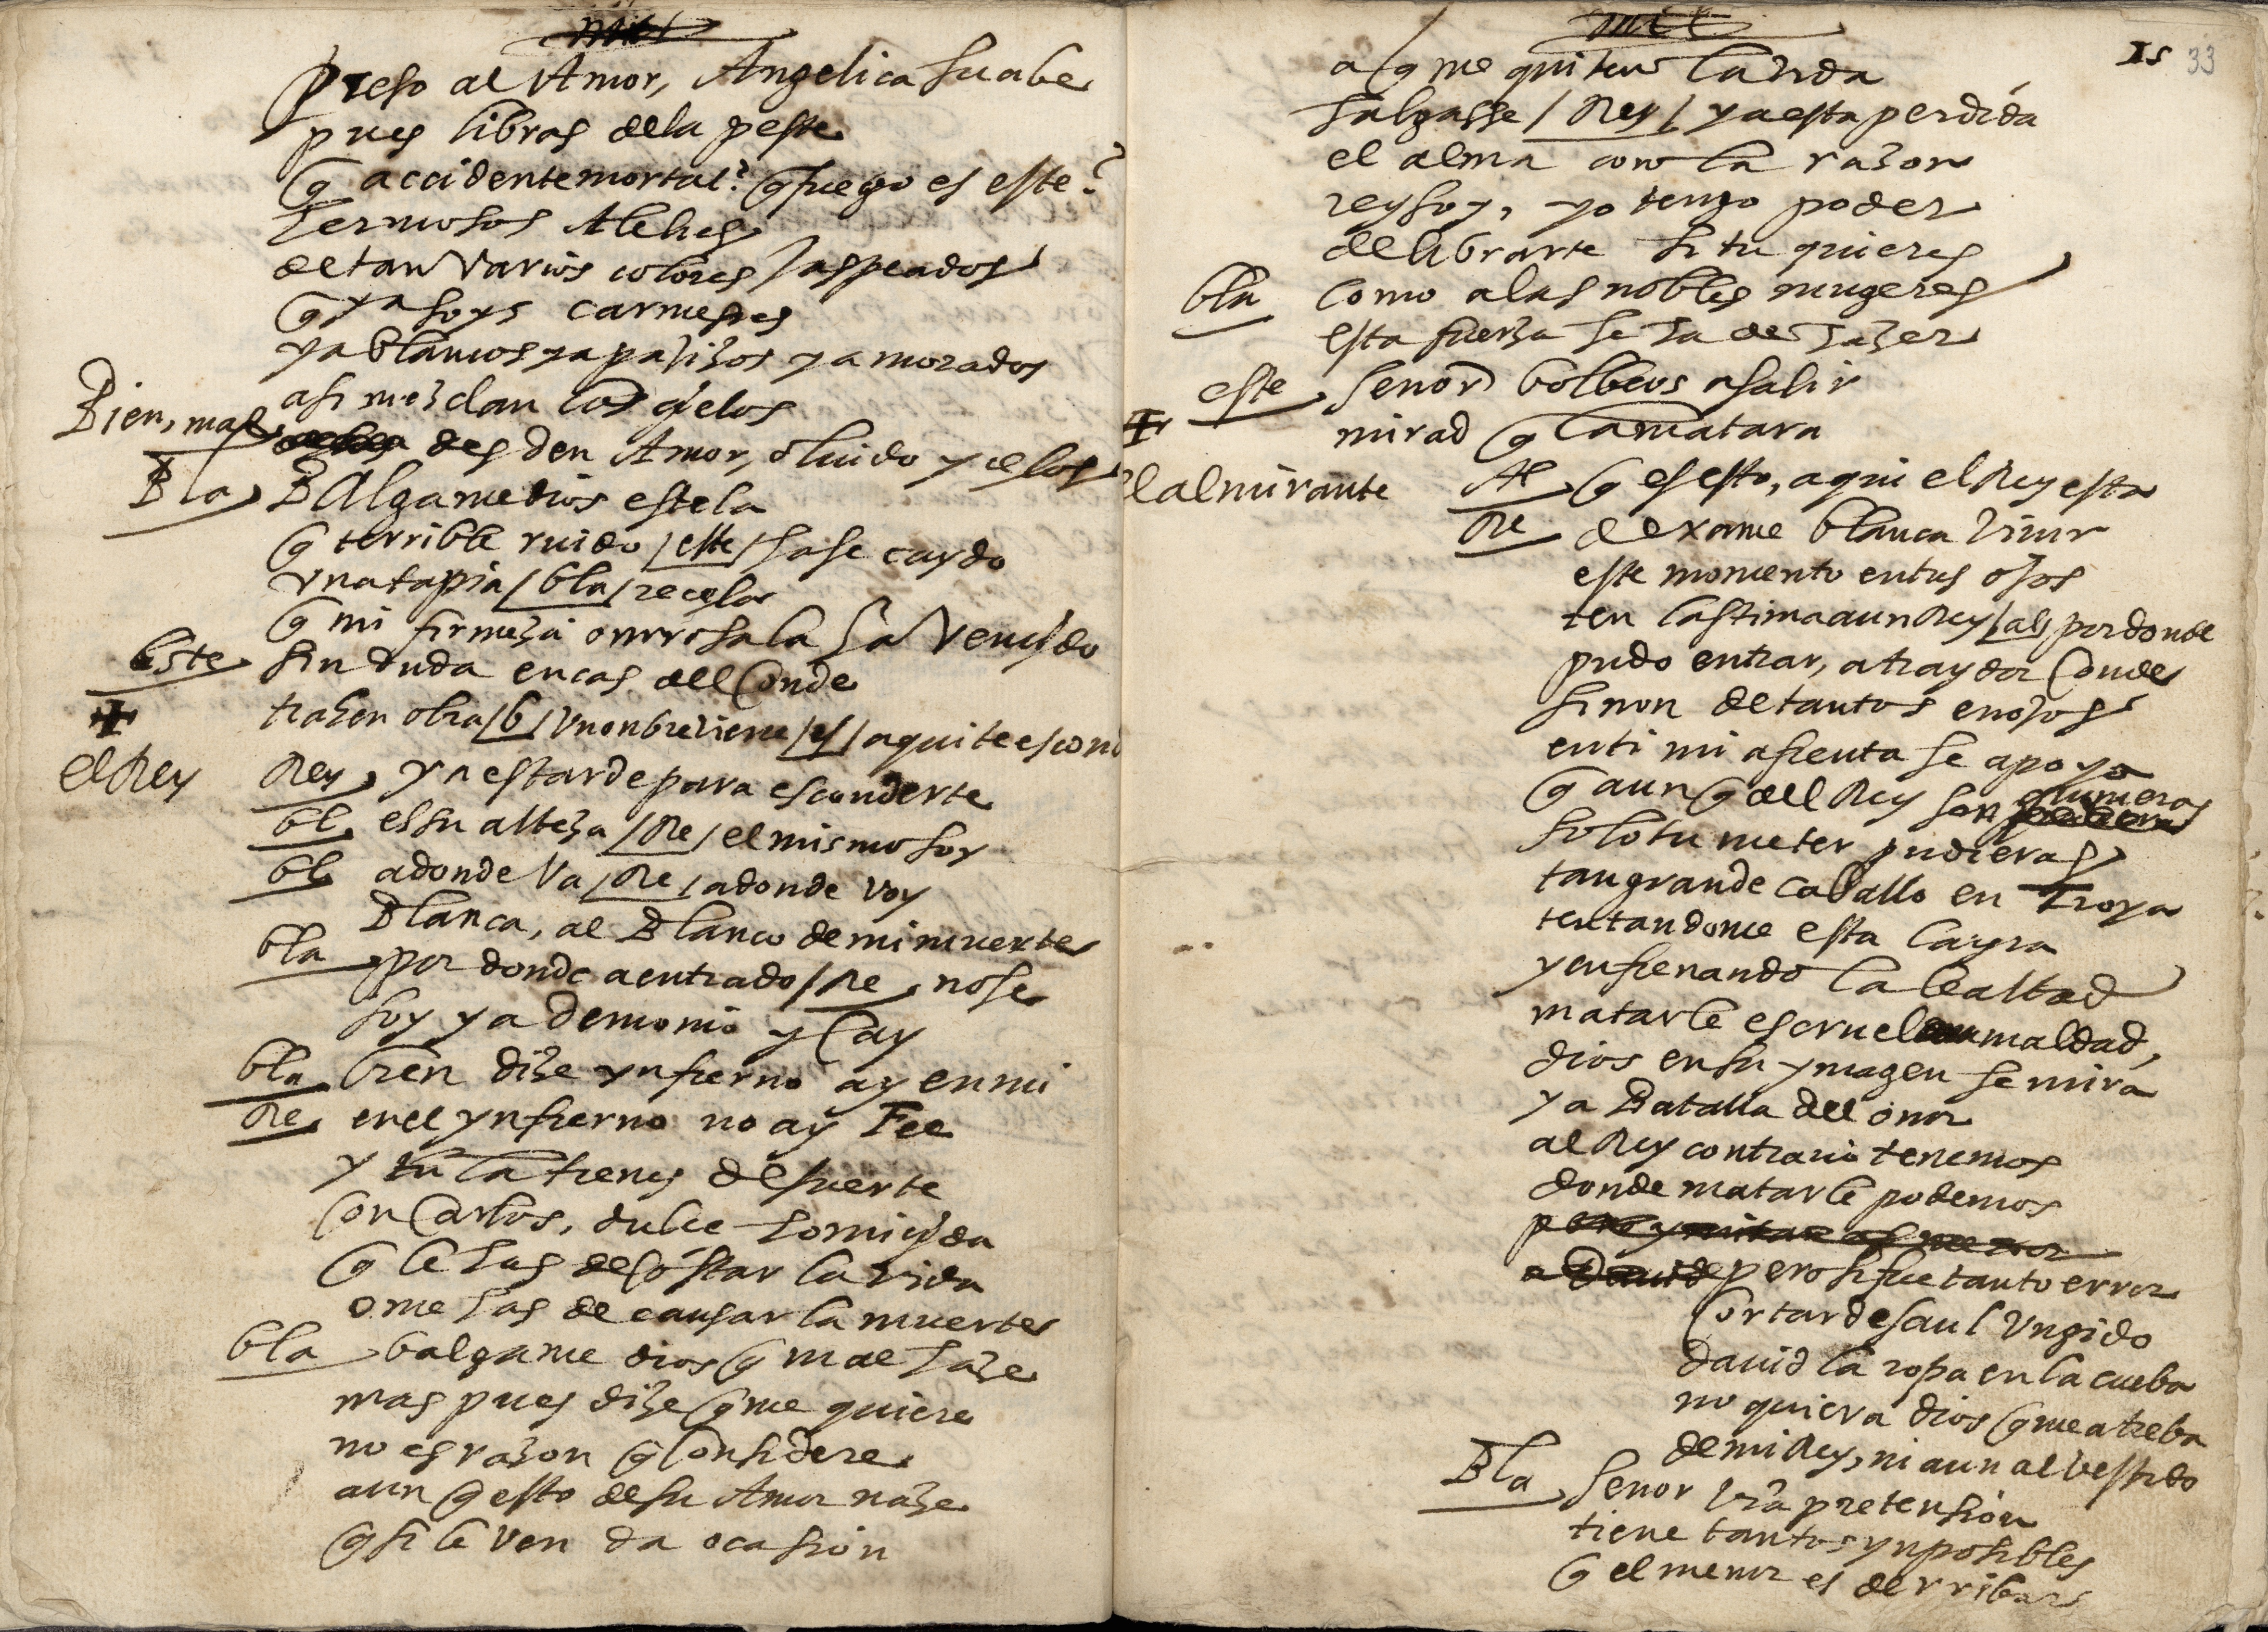 preso al Amor, Angelica suabe
pues libras dela peste
q accidente mortal? q fuego es este?
hermosos Alelies
de tan varios colores Jaspeados
q ya soys carmesies
ya blancos ya pajizos ya morados
asi mezclan los çielos
Bien, mal, desden Amor, oluido y celos
Bla Balgame dios estela
q terrible ruido / este / hase caydo
vna tapia / bla / recelo
q mi firmeza onrrosa la ha vençido
Este sin duda en cas del Conde
trahen obra / b / vn onbre viene / es / aqui te escond
el Rey
Rey ya es tarde para esconderte
bl es su alteza / Re / el mismo soy
bl adonde va / Re / adonde voy
Blanca, al Blanco de mi muerte
bla por donde a entrado / Re no se
soy ya demonio y Cay
bla bien dize ynfierno ay en mi
Re en el ynfierno no ay Fee
y tu la tienes de suerte
con Carlos, dulce homiçida
q le has de costar la vida
o me has de causar la muerte
bla balgame dios q mal haze
mas pues dize q me quiere
no es razon q Considere
aun q esto de su Amor naze
q si le ven da ocasion
15 33
a q me quiten la vida
salgasse / Rey / ya esta perdida
el alma con la razon
rey soy, yo tengo poder
de librarte si tu quieres
bla como a las nobles mugeres
esta fuerza se ha de hazer
este señor bolbeos a salir
mirad q la matara
el almirante
Al q es esto, aqui el Rey esta
Re dexame blanca viuir
este momento en tus ojos
ten lastima a un Rey / al / por donde
pudo entrar, a traydor Conde
sinon de tantos enojos
en ti mi afrenta se apoya
q aun q del Rey son quimeras
solo tu meter pudieras
tan grande caballo en Troya
tentandome esta la yra
y enfrenando la lealtad
matarle es cruel maldad,
dios en su ymagen se mira
ya Batalla del onor
al Rey contrario tenemos
donde matarle podemos
pero si fue tanto error
Cortar de saul Vngido
dauid la ropa en la cueba
no quiera dios q me atreba
de mi Rey, ni aun al vestido
Bla señor vra pretension
tiene tantos ynposibles
q el menor es derribar